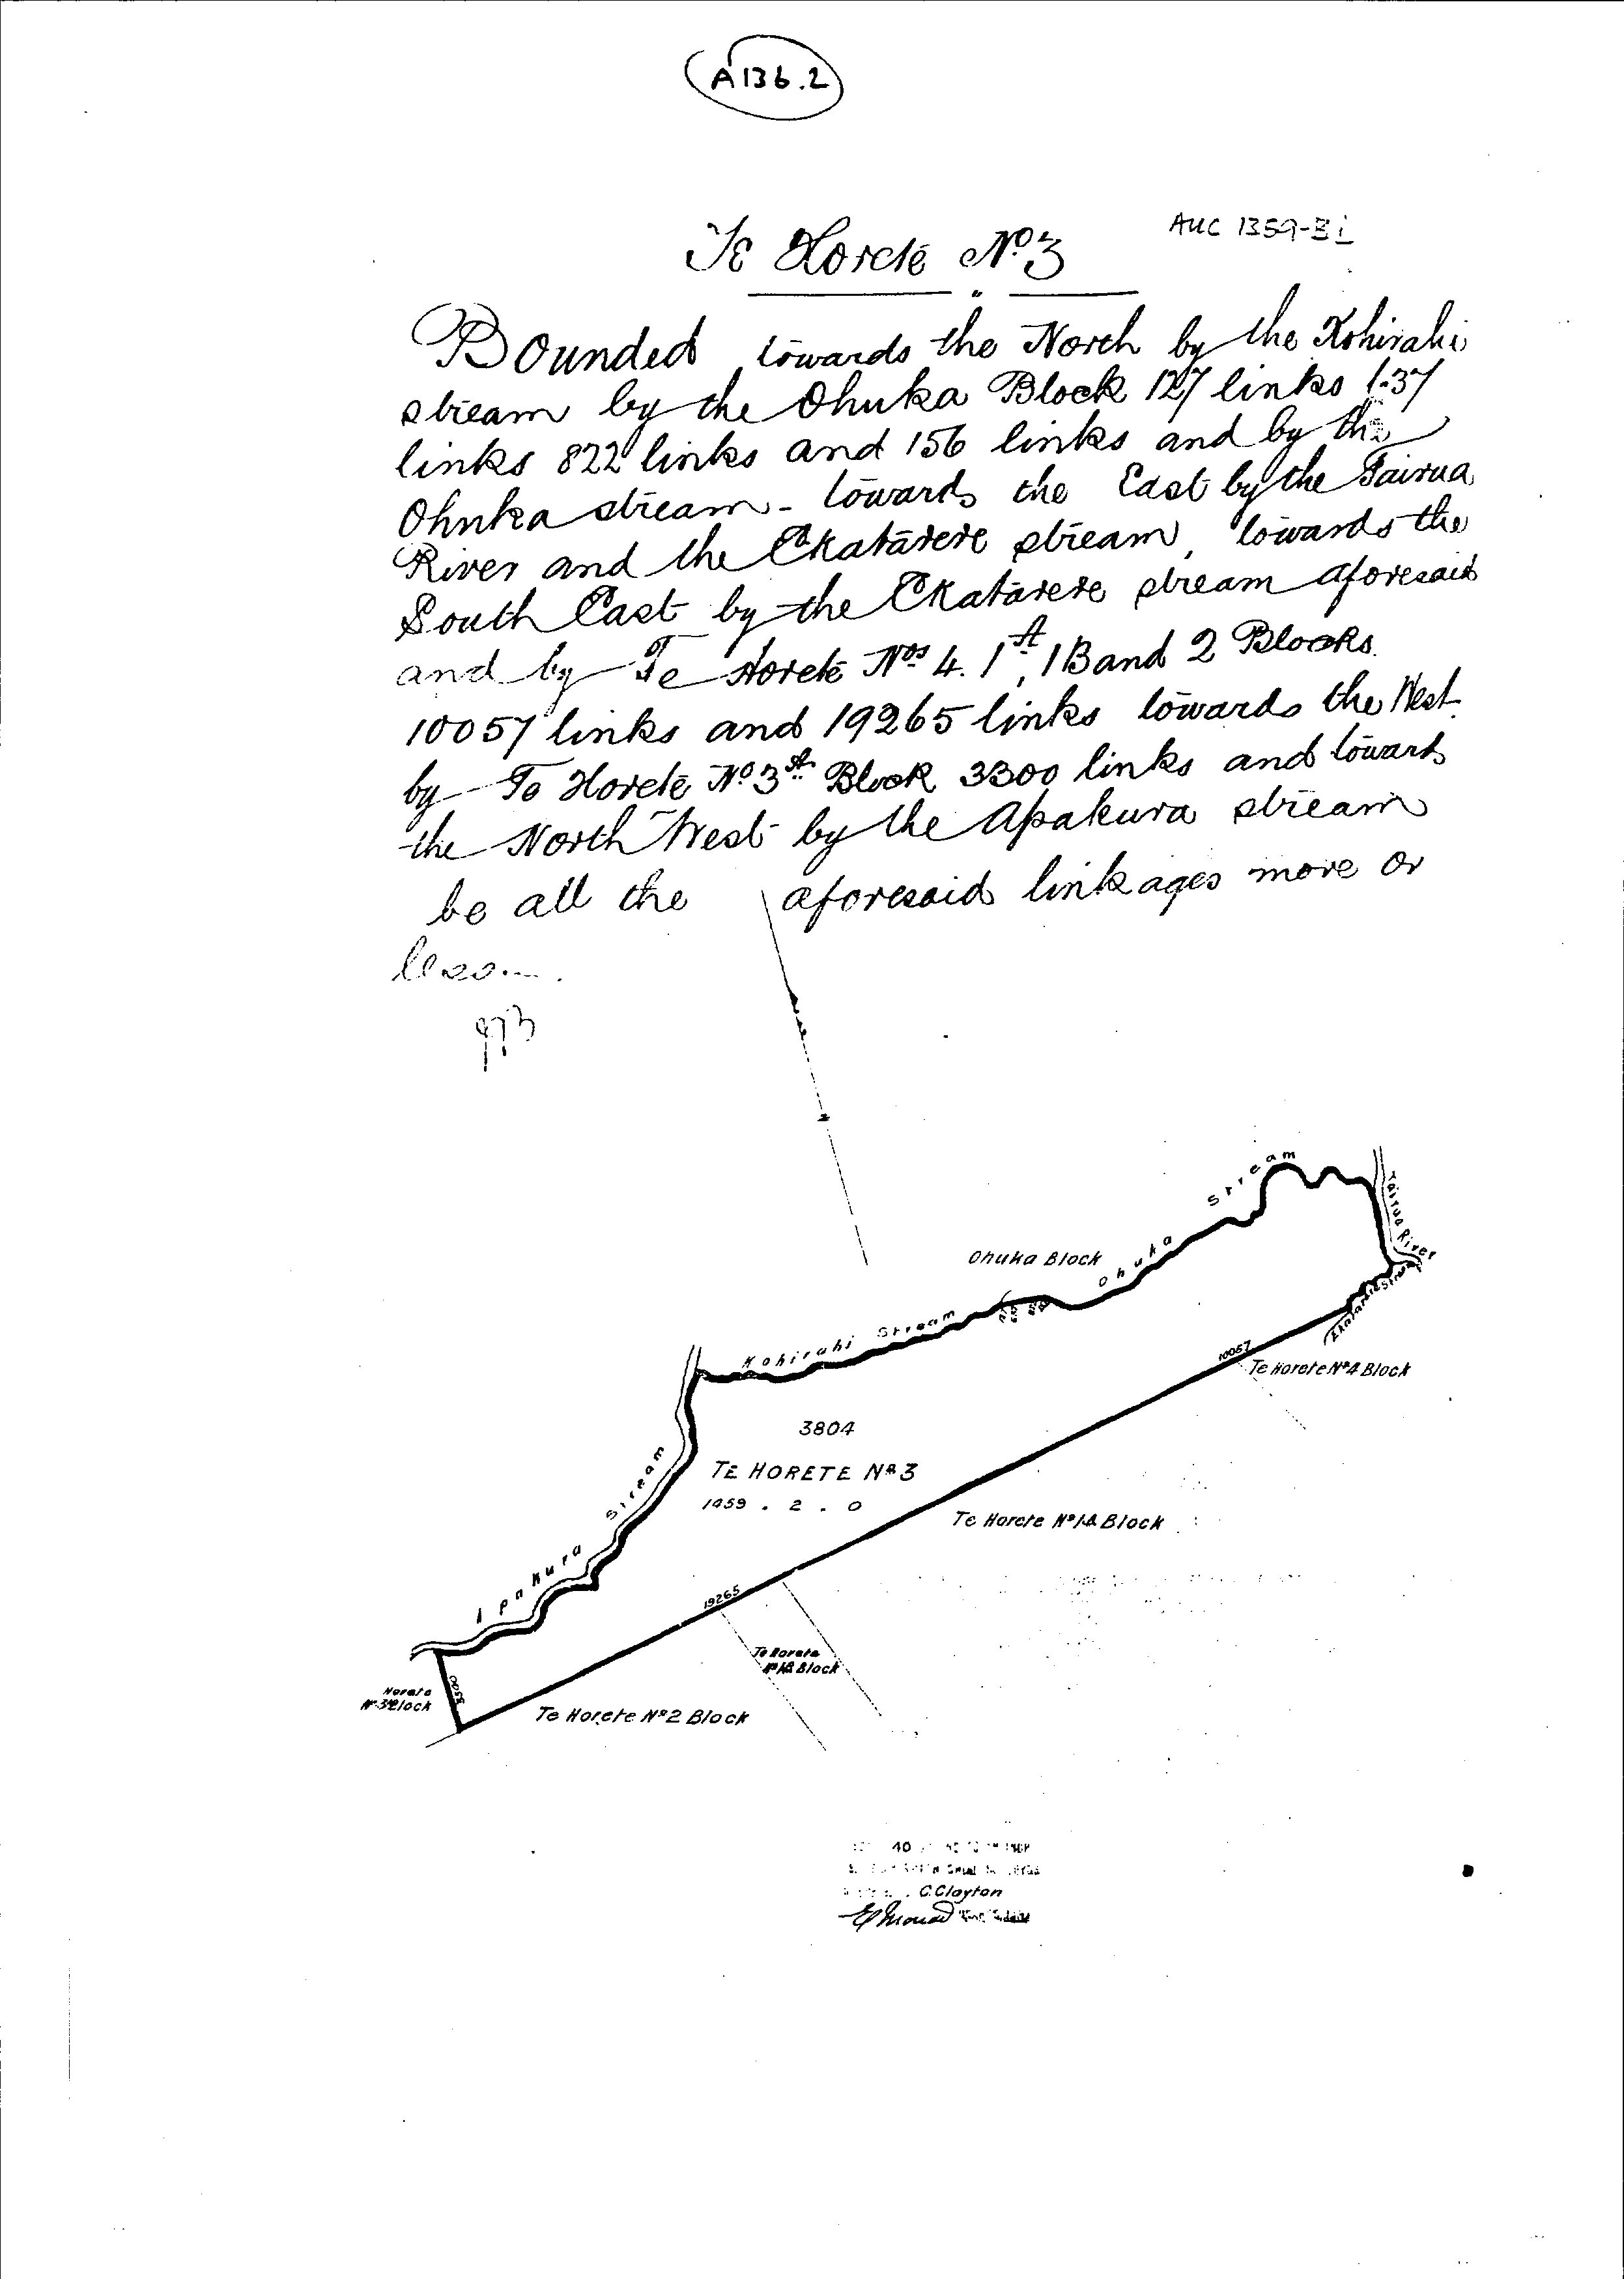 A136.2
AUC 1359-3i
Te Horete No. 3
Bounded towards the North by the Kohirahi
stream by the Ohuka Block 127 links 137
links 822 links and 156 links and by the
Ohuka stream - towards the East by the Tairua
River and the Ekatarere stream, towards the
South East by the Ekatarere stream aforesaid
and by Te Horete Nos 4. 1A, 1B and 2 Blocks
10057 links and 19265 links towards the West
by Te Horete No. 3A Block 3300 links and towards
the North West by the Apakura stream
be all the aforesaid linkages more or
less.
Stream
Tairua River
Ohuka Block
Ohuka
Kohirahi Stream
Ekatarere Stream
10057
Te Horete No. 4 Block
3804
TE HORETE No. 3
1459 . 2 . 0
Apakura Stream
Te Horete No. 1A Block
19265
Te Horete
No. 1B Block
3300
Horete
No. 3A Block
Te Horete No. 2 Block
40
C. Clayton